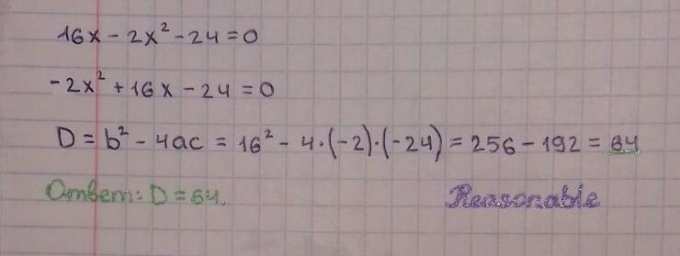 16x - 2x² - 24 = 0
-2x² + 16x - 24 = 0
D = b² - 4ac = 16² - 4·(-2)·(-24) = 256 - 192 = 64
Ответ: D = 64.
Reasonable